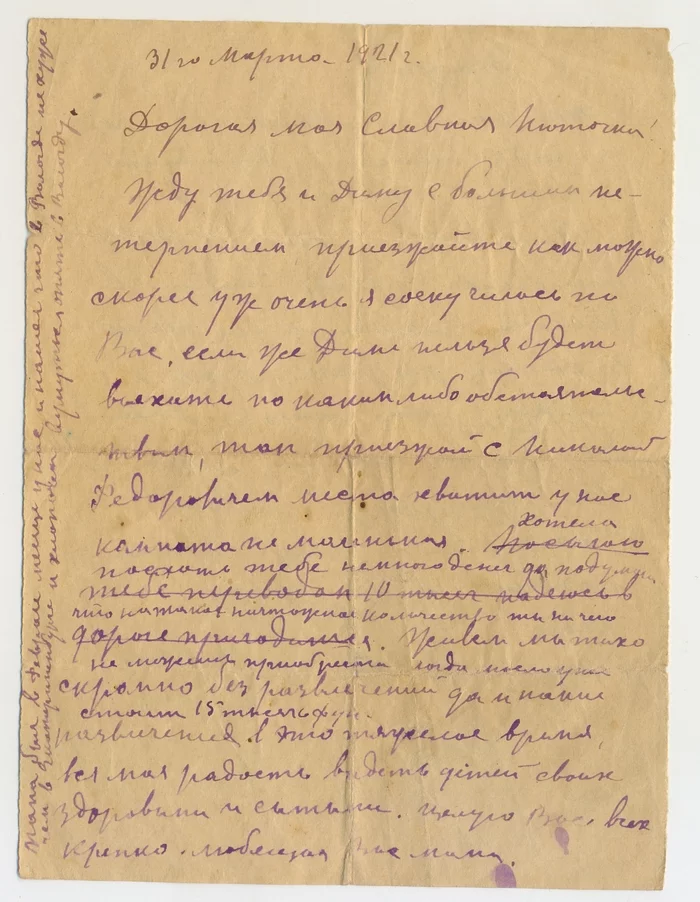 31го марта 1921 г.
Дорогая моя Славная Нюточка!
Жду тебя и Диму с большим не-
терпением приезжайте как можно
скорее уж очень я соскучилась по
Вас, если же Диме нельзя будет
выехать по каким либо обстоятельс-
твам, так приезжай с Николай
Федоровичем места хватит у нас
комната не маленькая. хотела
Посылаю
послать тебе немного денег да подумала
тебе переводом 10 тысеч надеюсь в
что на такое ничтожное количество ты ничего
дороге пригодится. Живем мы тихо
не можешь приобрести когда масло у нас
скромно без развлечений да и какие
стоит 15 тысеч фун.
развлечения в это тяжелое время,
вся моя радость видеть детей своих
здоровыми и сытыми. Целую Вас всех
крепко. любящая Вас мама.
Папа был в феврале месяце у нас и нашел что в Вологде не хуже
чем в Екатеринбурге и в Вологду.